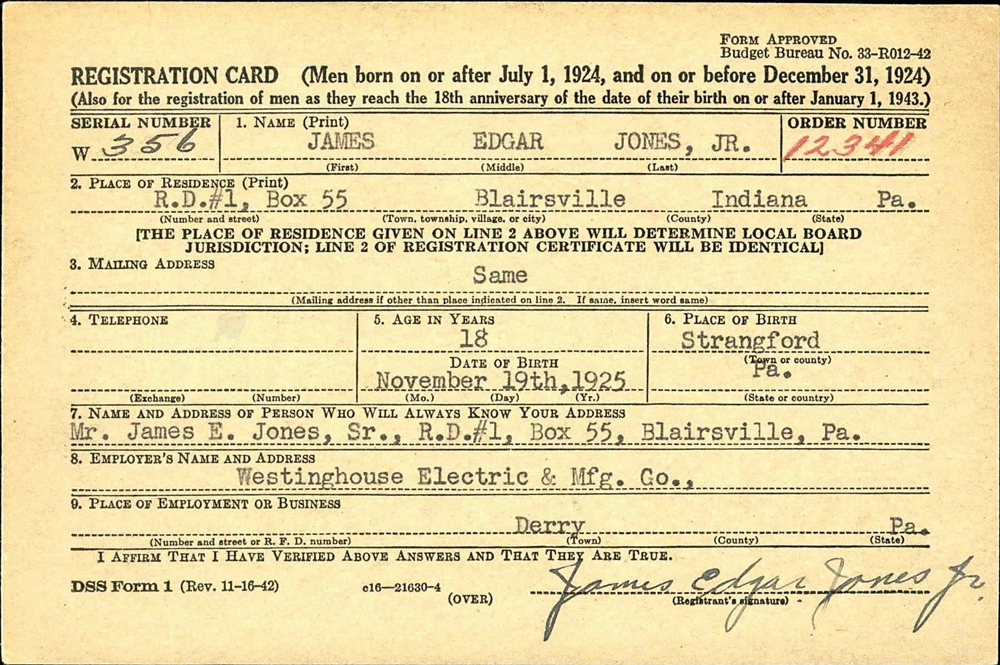 FORM APPROVED
Budget Bureau No. 33-R012-42
REGISTRATION CARD (Men born on or after July 1, 1924, and on or before December 31, 1924)
(Also for the registration of men as they reach the 18th anniversary of the date of their birth on or after January 1, 1943.)
SERIAL NUMBER 1. NAME (Print) ORDER NUMBER
W 356 JAMES EDGAR JONES, JR. 12341
(First) (Middle) (Last)
2. PLACE OF RESIDENCE (Print)
R.D.#1, Box 55 Blairsville Indiana Pa.
(Number and street) (Town, township, village, or city) (County) (State)
[THE PLACE OF RESIDENCE GIVEN ON LINE 2 ABOVE WILL DETERMINE LOCAL BOARD
JURISDICTION; LINE 2 OF REGISTRATION CERTIFICATE WILL BE IDENTICAL]
3. MAILING ADDRESS
Same
(Mailing address if other than place indicated on line 2. If same, insert word same)
4. TELEPHONE 5. AGE IN YEARS 6. PLACE OF BIRTH
18 Strangford
DATE OF BIRTH (Town or county)
Pa.
November 19th,1925
(Exchange) (Number) (Mo.) (Day) (Yr.) (State or country)
7. NAME AND ADDRESS OF PERSON WHO WILL ALWAYS KNOW YOUR ADDRESS
Mr. James E. Jones, Sr., R.D.#1, Box 55, Blairsville, Pa.
8. EMPLOYER'S NAME AND ADDRESS
Westinghouse Electric & Mfg. Co.,
9. PLACE OF EMPLOYMENT OR BUSINESS
Derry Pa.
(Number and street or R. F. D. number) (Town) (County) (State)
I AFFIRM THAT I HAVE VERIFIED ABOVE ANSWERS AND THAT THEY ARE TRUE.
DSS Form 1 (Rev. 11-16-42) c16—21630-4 (OVER) James Edgar Jones Jr.
(Registrant's signature)